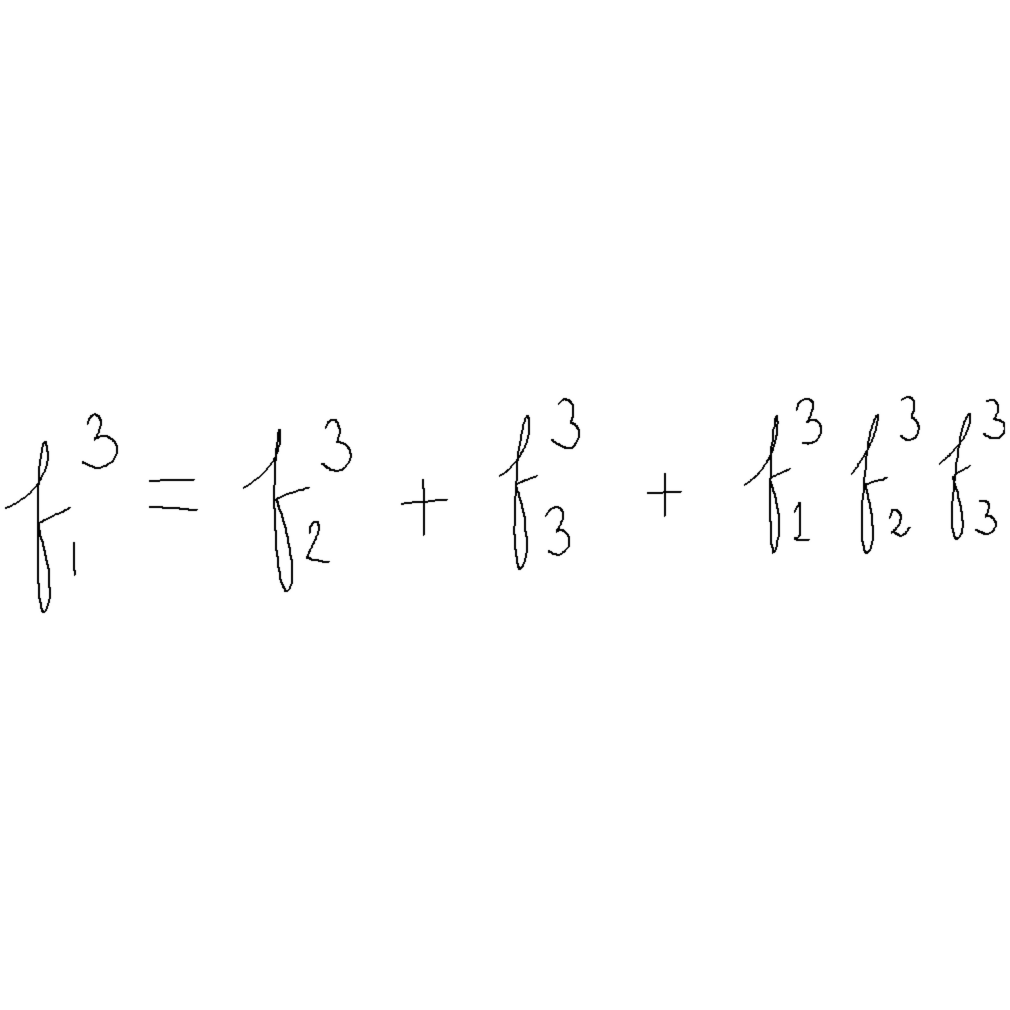 f₁³ = f₂³ + f₃³ + f₁³ f₂³ f₃³